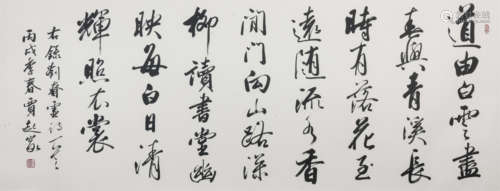 道由白雲盡
春與青溪長
時有落花至
遠隨流水香
閒門向山路深
柳讀書堂幽
映每白日清
輝照衣裳
右錄劉眘虛詩一首
丙戌季春賈起家